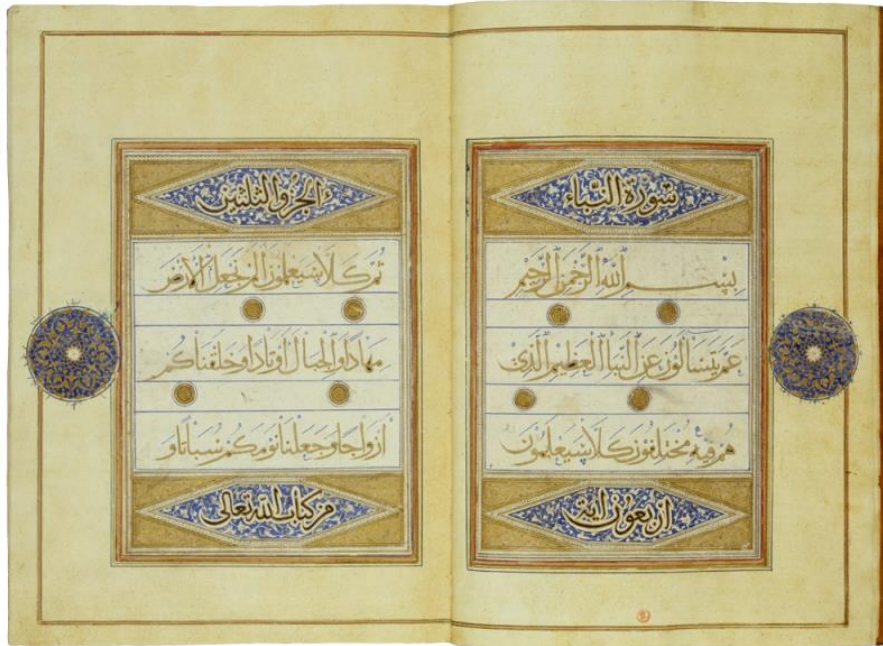 سورة النباء
بسم الله الرحمن الرحيم
عم يتساءلون عن النبا العظيم الذي
هم فيه مختلفون كلا سيعلمون
اربعون اية
الجزو الثلثين
ثم كلا سيعلمون الم نجعل الارض
مهادا والجبال اوتادا وخلقناكم
ازواجا وجعلنا نومكم سباتا و
من كتاب الله تعالى